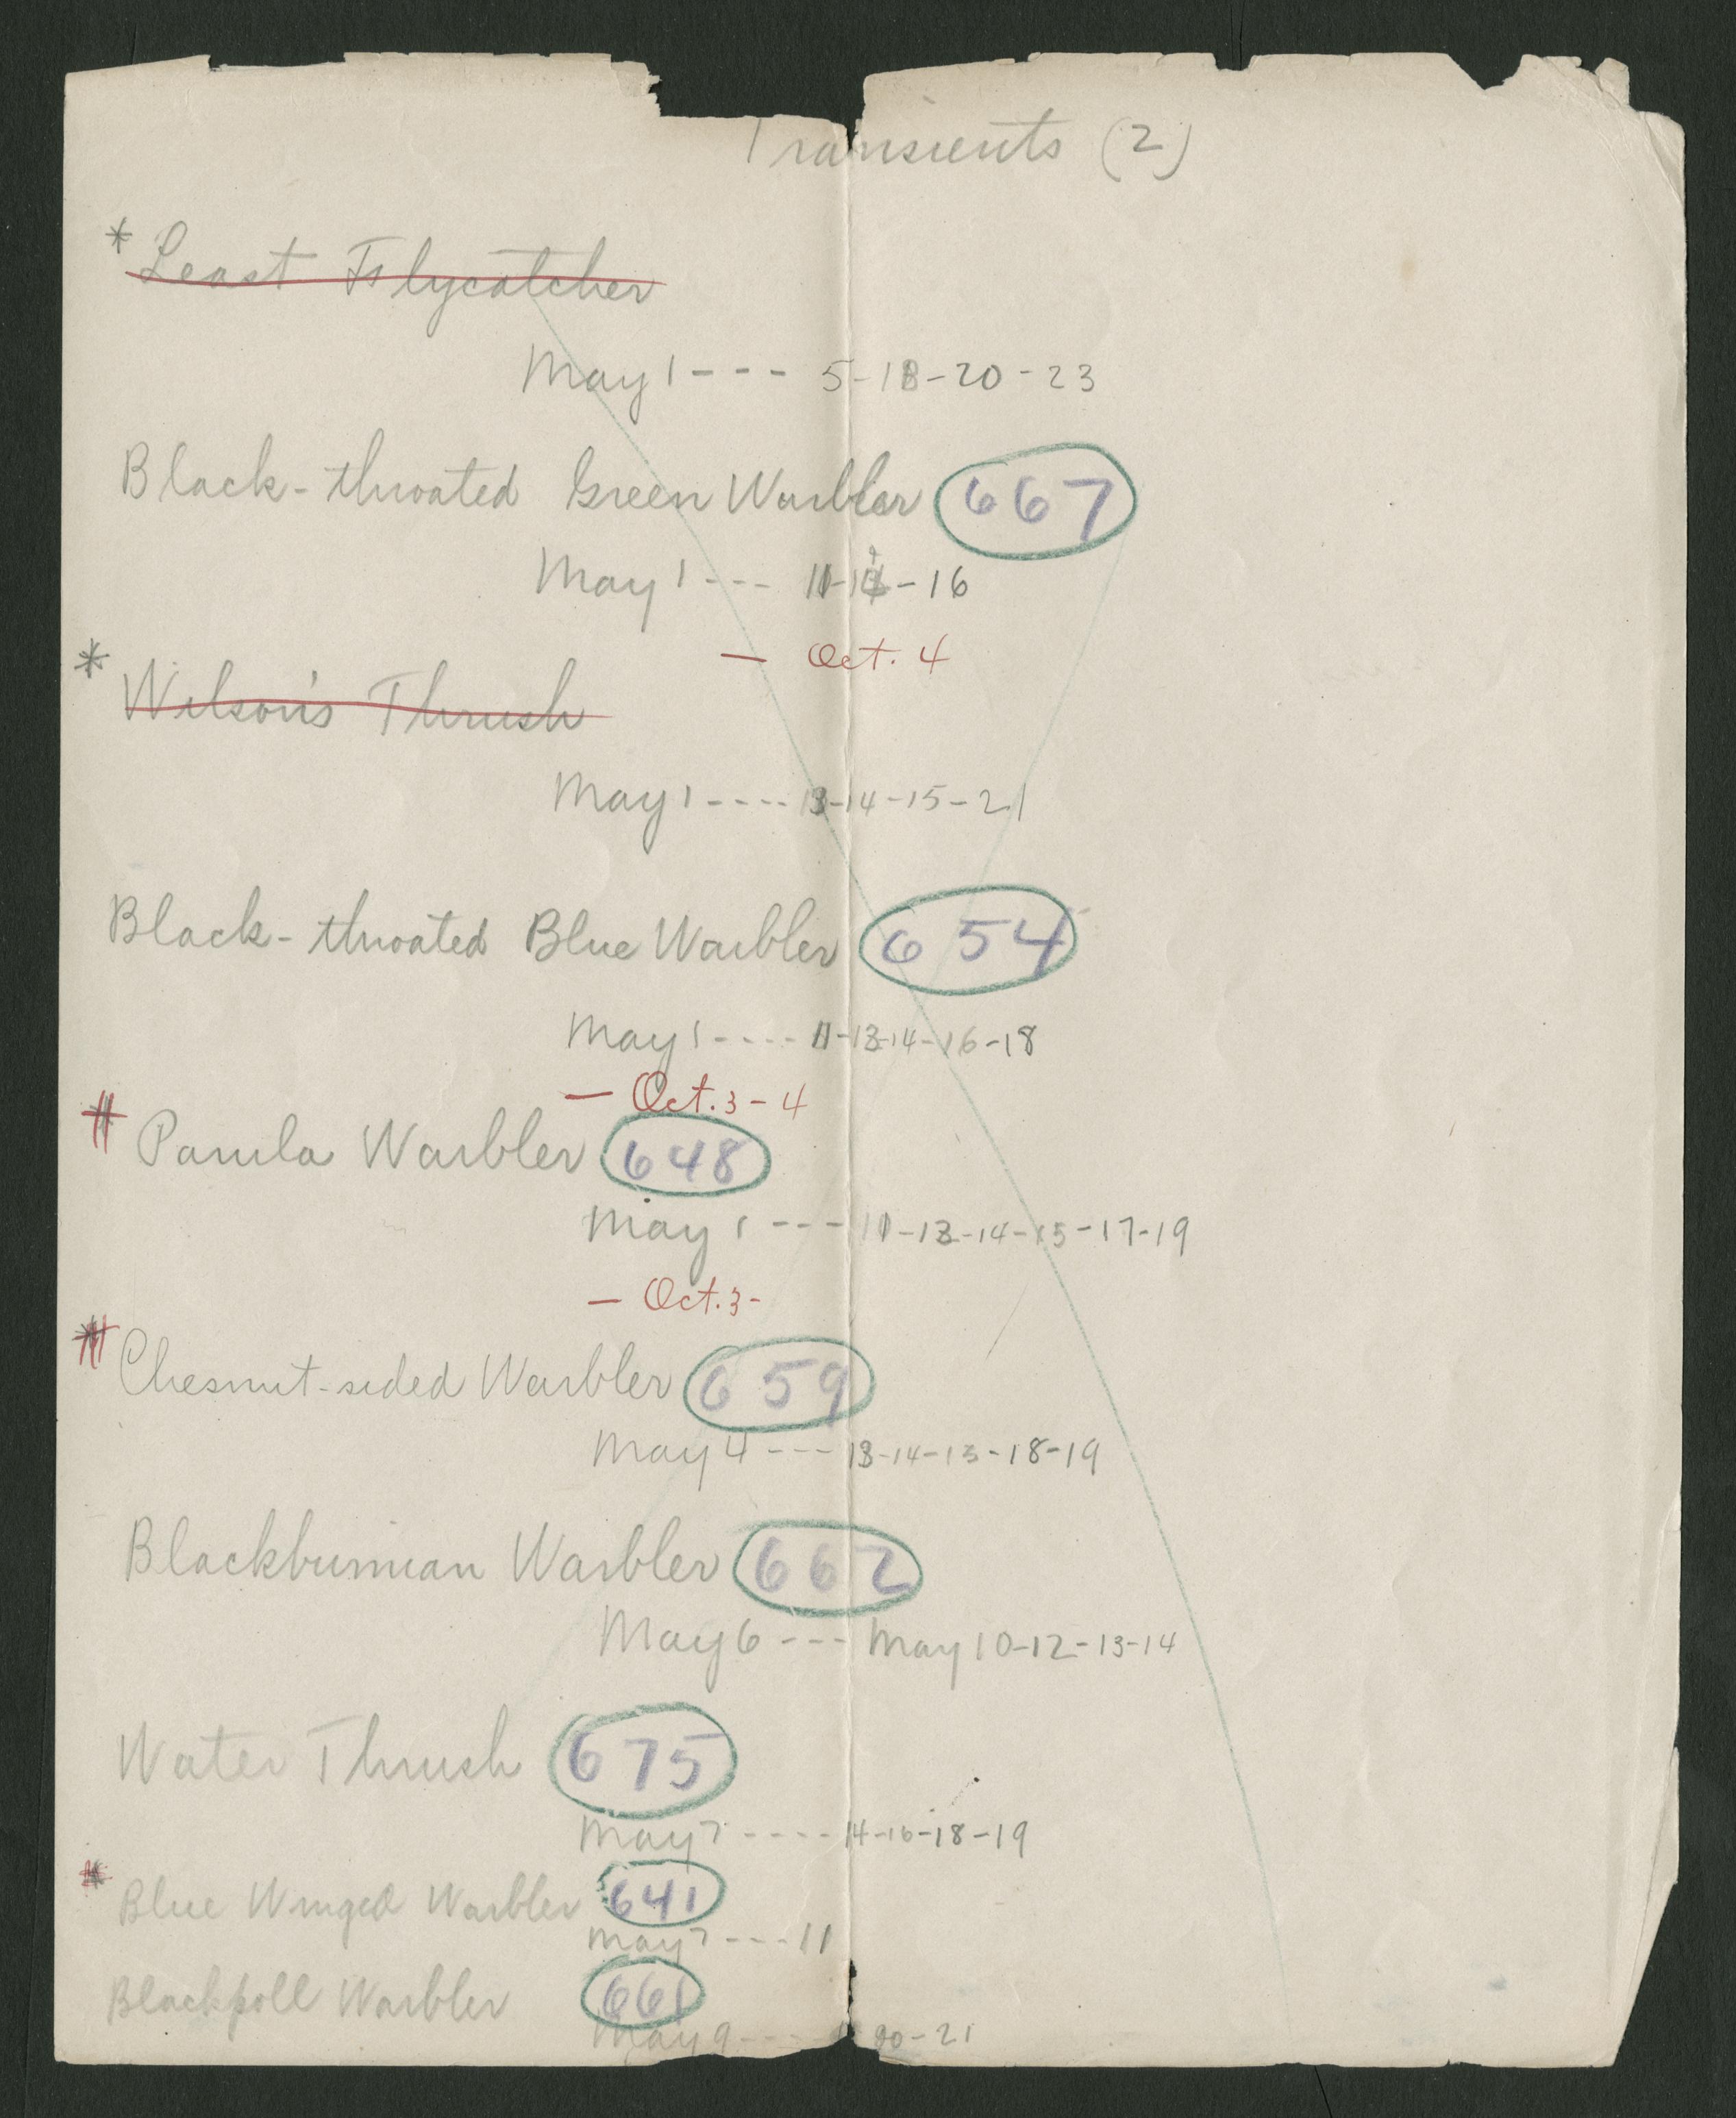 Transients (2)
* Least Flycatcher
May 1 --- 5-18-20-23
Black-throated Green Warbler 667
May 1 --- 11- -16
- Oct. 4
* Wilson's Thrush
May 1 ---- 13-14-15-21
Black-throated Blue Warbler 654
May 1 ---- 11-13-14-16-18
- Oct. 3-4
Parula Warbler 648
May 1 --- 11-13-14-15-17-19
- Oct. 3-
Chesnut-sided Warbler 659
May 4 --- 13-14-15-18-19
Blackburnian Warbler 662
May 6 --- May 10-12-13-14
Water Thrush 675
May 7 ---- 14-16-18-19
* Blue Winged Warbler 641
May 7 --- 11
Blackpoll Warbler 661
May 9 --- 20-21